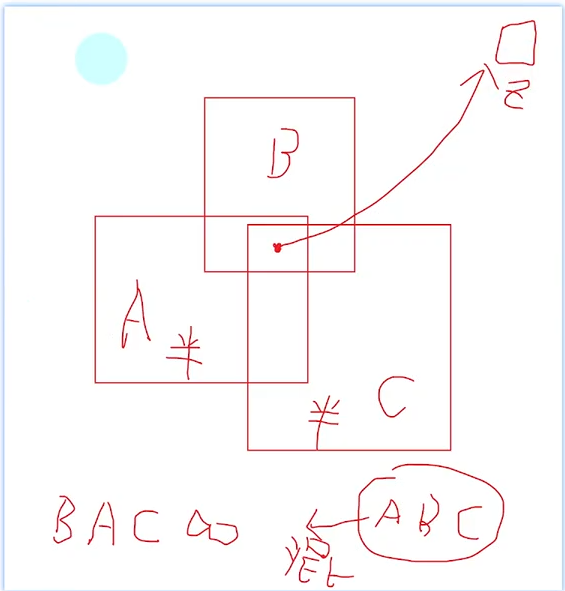 B
A
半
C
半
BAC ∞
ABC